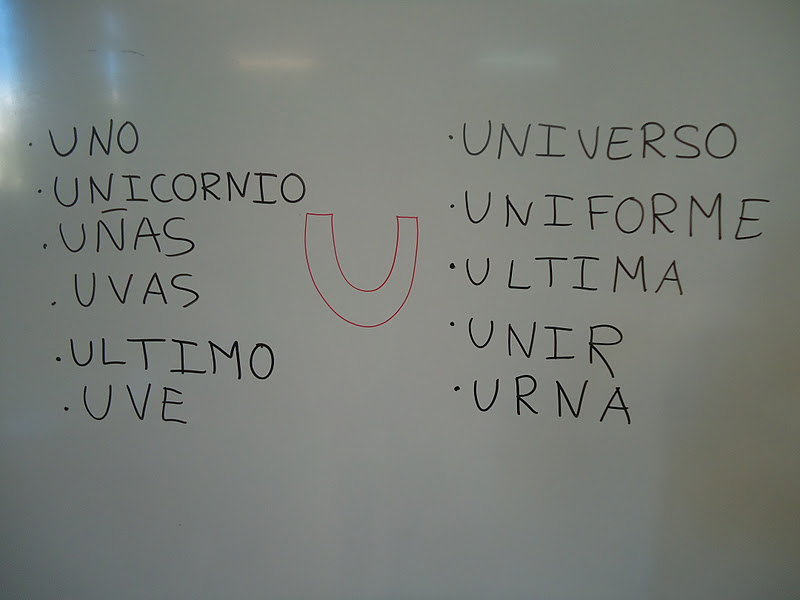 · UNO
· UNICORNIO
· UÑAS
· UVAS
· ULTIMO
· UVE
U
· UNIVERSO
· UNIFORME
· ULTIMA
· UNIR
· URNA